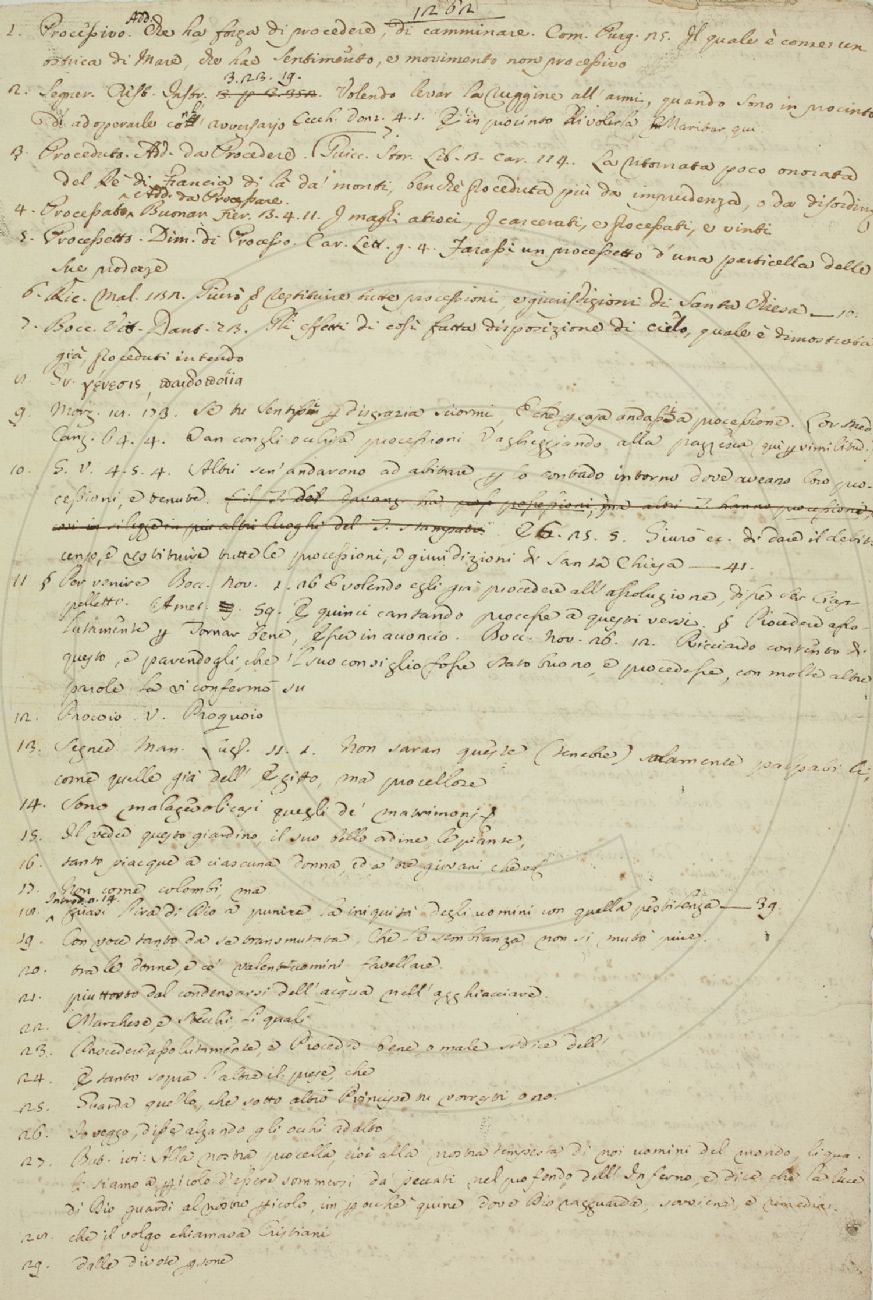 1262
1. Processivo. Add. Che ha forza di procedere, di camminare. Com. Purg. 25. Il quale è come un
ostrica di Mare, che hae Sentimento, e movimento non processivo
2. Segner. Crist. Instr. 3. 23. 19. Volendo levar la ruggine all'armi, quando sono in procinto
di adoperarle coll' avversario Cecch. Donz. 4. 1. E in procinto Di volerla Maritar qui
3. Proceduto. Add. da Procedere. Guicc. Stor. Lib. 13. Car. 114. La ritornata poco onorata
del Re di Francia di là da' monti, benchè proceduta più da imprudenza, o da disordine
4. Processato Add. da Processare. Buonar. Fier. 3. 4. 11. I magli atroci, I carcerati, e processati, e vinti
5. Processetto. Dim. di Processo. Car. Lett. 9. 4. Farassi un processetto d'una particella delle
sue prodezze
6. Ric. Mal. 152. Giurò restituire tutte processioni e giurisdizioni di Santa Chiesa — 10.
7. Bocc. Vit. Dant. 23. Gli effetti di così fatta disposizione di cielo, quale è dimostrata
già, proceduti intendo
8. Gr. γένεσις,
9. Morg. 18. 173. Se tu sentissi disgrazia a processione. Lor. Med.
Canz. 64. 4. Van con gli occhi a processioni Vagheggiando alla pazzesca, qui
10. G. V. 4. 5. 4. Altri sen' andarono ad abitare per lo contado intorno dove aveano loro pro-
cessioni, e tenute. E 6. 25. 5. Giurò ec. di dare il debito
censo, e restituire tutte le processioni, e giurisdizioni di Santa Chiesa — 41.
11 § Per venire Bocc. Nov. 1. 26 E volendo egli già procedere all'assoluzione, disse Ser Ciap-
pelletto. Amet. 59. E quinci cantando processe a questi versi. § Procedere asso-
lutamente per Tornar bene, Esser in acconcio. Bocc. Nov. 26. 12. Ricciardo contento di
questo, e parendogli, che 'l suo consiglio fosse stato buono, e procedesse, con molte altre
parole la vi confermò su
12. Procoio. V. Proquoio
13. Segner. Man. Lugl. 11. 1. Non saran queste (tenebre) solamente palpabili,
come quelle già dell'Egitto, ma procellose
14. Sono malagevoli casi quegli de' matrimonj
15. Il veder questo giardino, il suo bello ordine, le piante,
16. tanto piacque a ciascuna donna, ed a' tre giovani che
17. Non come colombi, ma
18. Introd. n. 14. Quasi l'ira di Dio a punire la iniquità degli uomini con quella pestilenza — 39.
19. Con voce tanto da se transmutata, Che la sembianza non si mutò piue.
20. tra le donne, e co' valentuomini favellare.
21. piuttosto dal condensarsi dell'acqua nell'agghiacciare.
22. Marchese, e Stecchi li quali
23. Procedere assolutamente, e Procedere bene, o male si dice dell'
24. E tanto sopra l'altre il pose, che
25. Guarda quello, che sotto altro Principe tu vorresti o no.
26. Io veggo, disse alzando gli occhi ad alto,
27. But. ivi: Alla nostra procella, cioè alla nostra tempesta di noi uomini del mondo, li qua-
li siamo a pericolo d'essere sommersi da' peccati nel profondo dell'Inferno, e dice, che la luce
di Dio guardi al nostro pericolo, in perocchè quine dove Dio ragguarda, sovviene, e rimedia.
28. che il volgo chiamava Cristiani
29. dalle divote persone